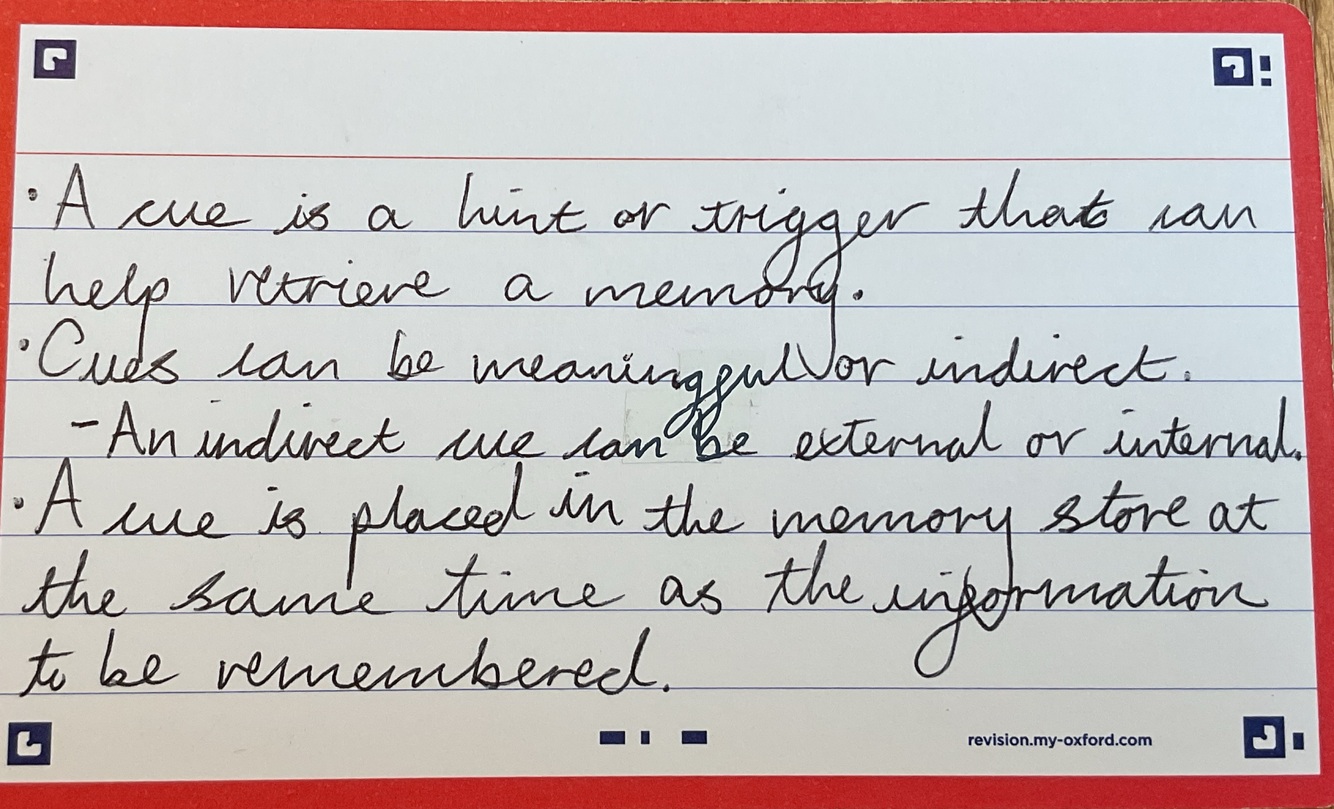 • A cue is a hint or trigger that can
help retrieve a memory.
• Cues can be meaningful or indirect.
- An indirect cue can be external or internal.
• A cue is placed in the memory store at
the same time as the information
to be remembered.
revision.my-oxford.com